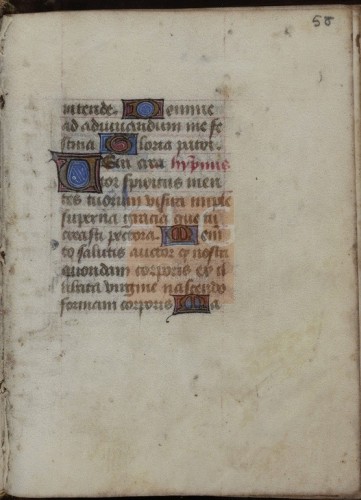 58
intende. Domine
ad adiuuandum me fe
stina Gloria patri.
Veni crea hympnus
tor spiritus men
tes tuorum visita imple
superna gracia que tu
creasti pectora. Mem
to salutis auctor q nostri
quondam corporis ex il
libata virgine nascendo
formam corporis Ma